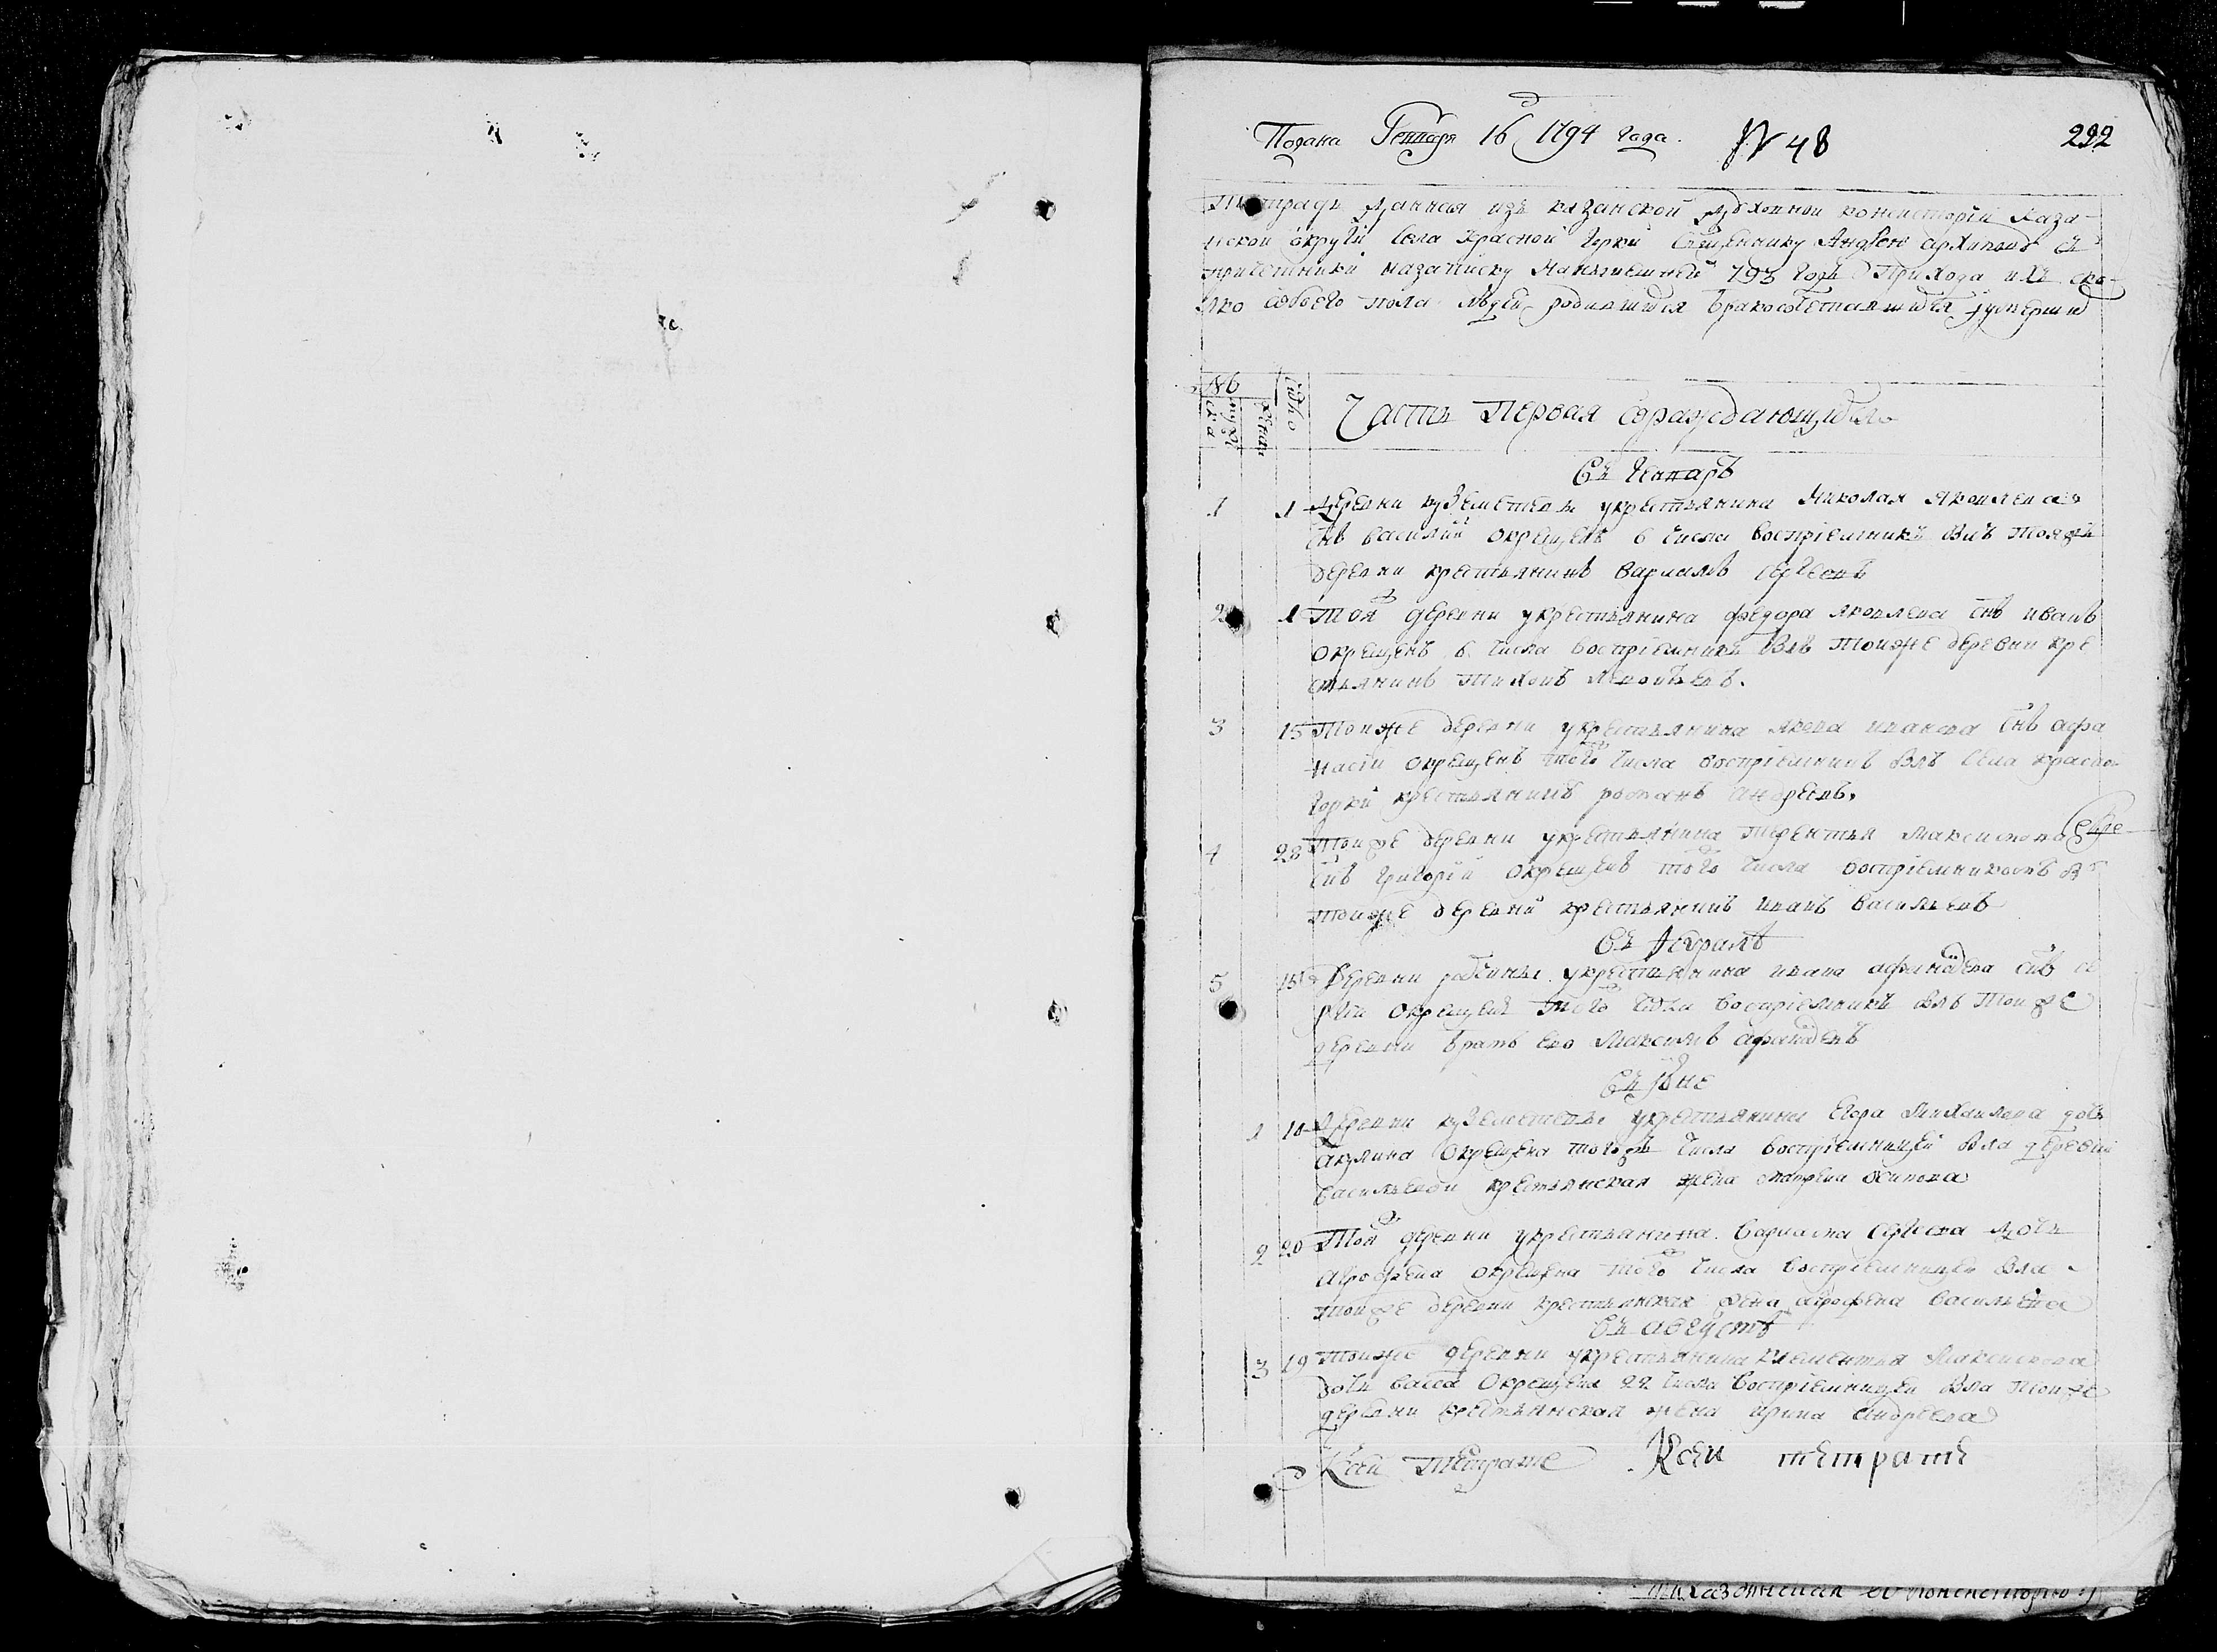 Подана Генваря 16 1794 года. № 48 222
Тетрадь данная изъ казанской духовной консисторіи каза-
нской округи села Красной горки священнику Андрею архипову съ
причетники назаписку нанынешней 793 годъ прихода ихъ ско-
лко обоего пола людей родившихся бракосочетавшихся и умершихъ
№
мужеска
женск
число
Часть первая ораждающихся
въ Генварѣ
1 1 Деревни куземетева укрестьянина Николая Яковлева
снъ василии окрещенъ 6 числа воспріемникъ былъ тояжъ
деревни крестьянинъ варламъ сергеевъ
2 1 Той деревни укрестьянина федора яковлева снъ иванъ
окрещенъ 6 числа воспріемникъ былъ тоиже деревни кре
стьянинъ тихонъ
3 15 Тоиже деревни укрестьянина якова иванова снъ афа
насіи окрещенъ того числа воспріемникъ былъ села красно
горки крестьянинъ романъ андреевъ.
4 28 Тоиже деревни укрестьянина терентья максимова
снъ григорій окрещенъ того числа воспріемникомъ
тоиже деревни крестьянинъ иванъ васильевъ
въ Феврале
5 15 Деревни укрестьянина ивана афанасева снъ се
ргіи окрещенъ того числа воспріемникъ былъ тоиже
деревни братъ ево максимъ афанасевъ
въ Июне
1 10 Деревни куземетева укрестьянина егора михаилова дочь
акулина окрещена тогожъ числа воспріемницей была деревни
васильевой крестьянская жена матрена осипова
2 20 Той деревни укрестьянина варлама сергеева дочь
агрофена окрещена того числа воспріемницей была
тоиже деревни крестьянская жена агрофена васильева
въ августѣ
3 19 тоиже деревни укрестьянина клементья максимова
дочь васса окрещена 22 числа воспріемницей была тоиже
деревни крестьянская жена ирина андреева
Ксей тетрате Ксеи тетрате
консисторію